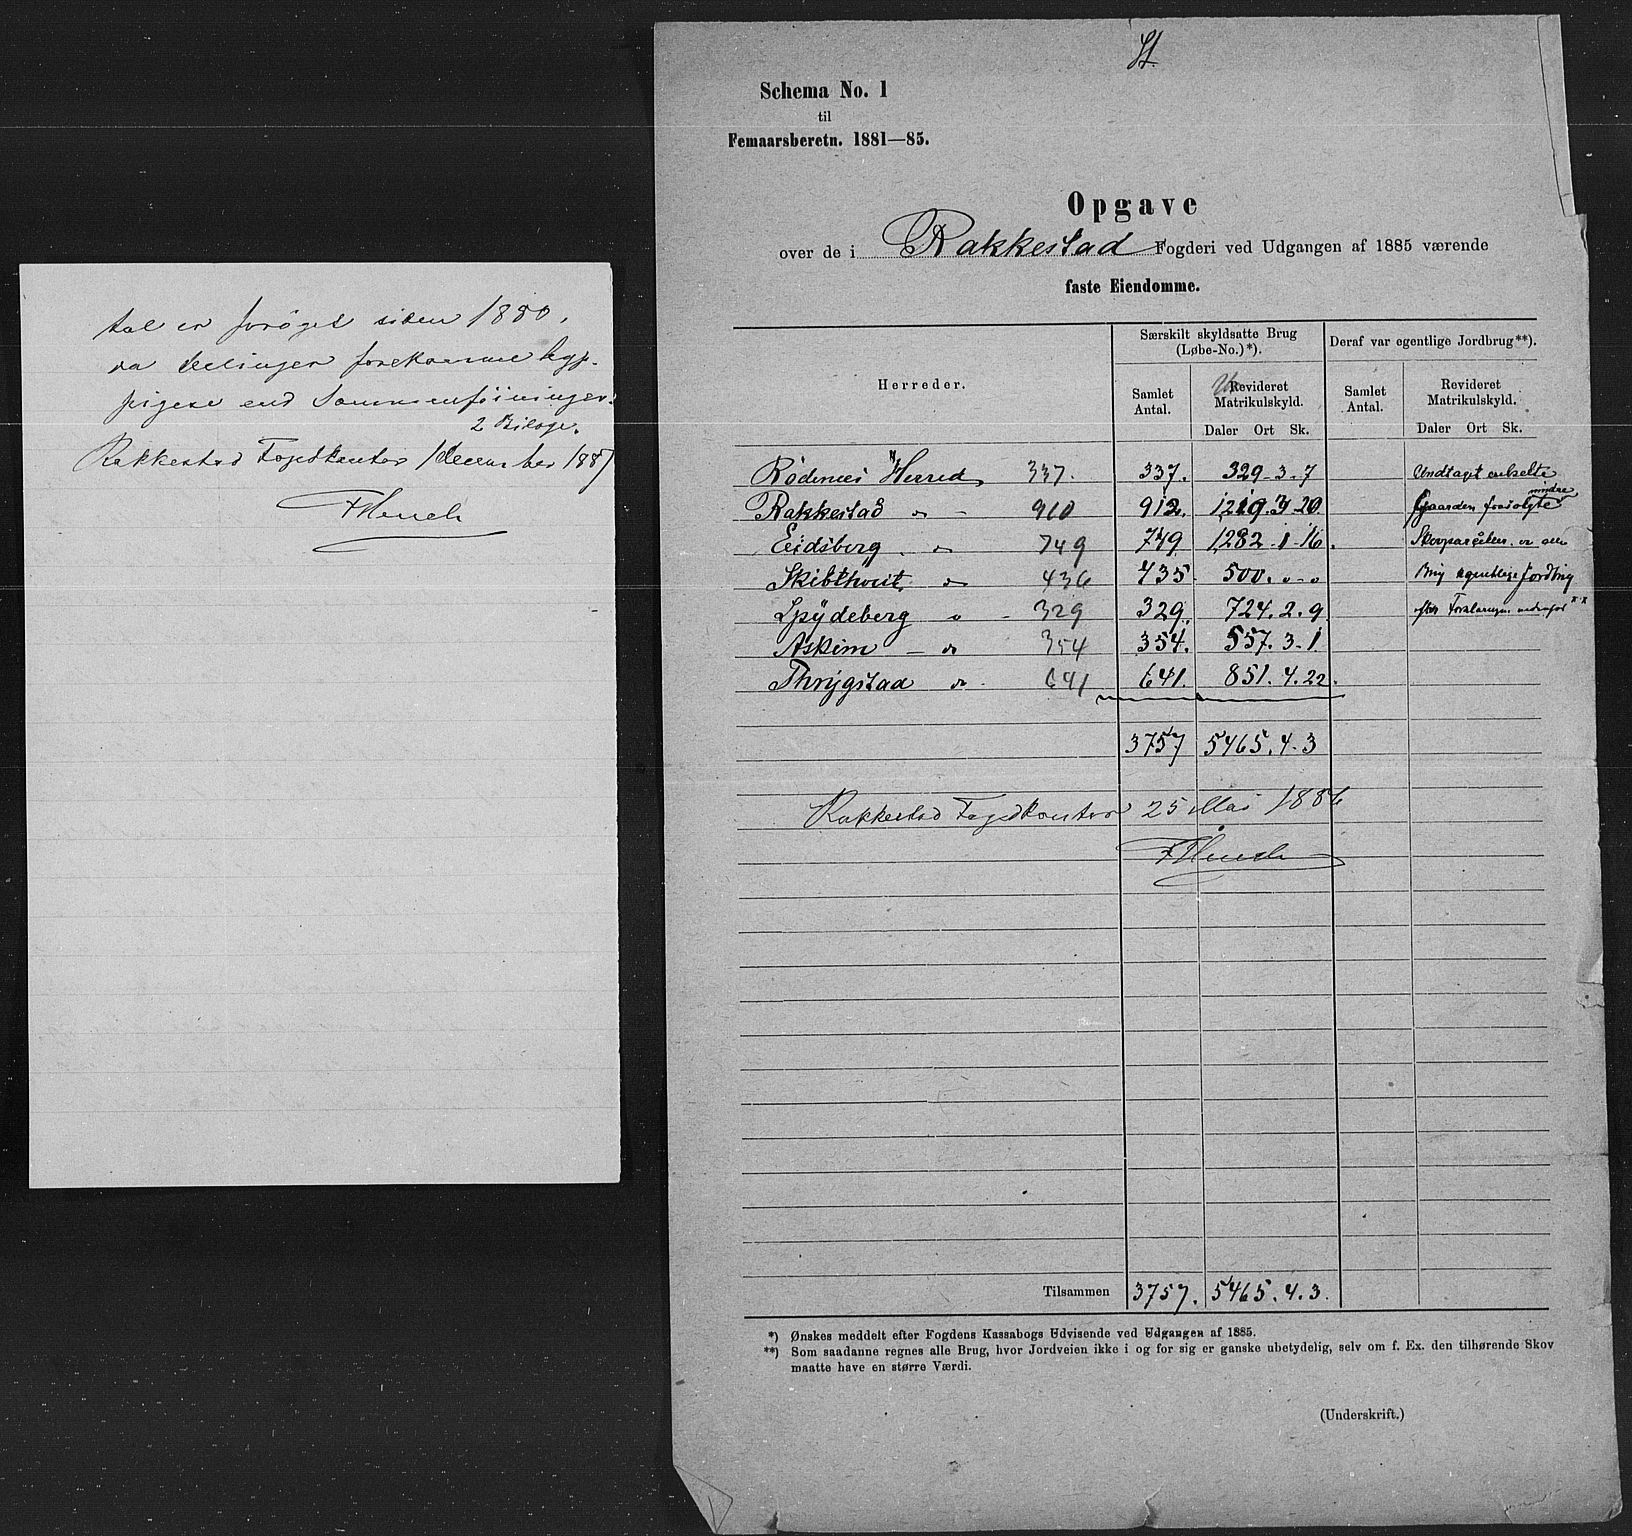 tal er forøget siden 1880,
da delinger forekomme hyp-
pigere end Sammenföininger.
2 Bilage.
Rakkestad Fogedkontor 1 december 1887
Schema No. 1
til
Femaarsberetn. 1881—85.
Opgave
over de i Rakkestad Fogderi ved Udgangen af 1885 værende
faste Eiendomme.
Særskilt skyldsatte Brug
(Løbe-No.)*).
Deraf var egentlige Jordbrug**).
Herreder.
Samlet Antal.
Revideret Matrikulskyld.
Daler Ort Sk.
Samlet Antal.
Revideret Matrikulskyld.
Daler Ort Sk.
Rödenes Herred 337. 337. 329-3-7 Undtaget enkelte
Rakkestad " - 910 912. 1219.3 20 Gaarden frasolgte mindre
Eidsberg " 749 749 1282-1-16. Skovparceller er alle
Skibthvet " 436 435 500. 0-0 Brug egentlige Jordbrug
Spydeberg " - 329 329. 724.2.9 efter Forklaringen nedenfor **
Askim — " 354 354. 557.3-1
Thrygstad " 641 641. 851.4.22.
3757 5465.4-3
Rakkestad Fogedkontor 25 Mai 1886
Tilsammen 3757. 5465.4.3.
*) Ønskes meddelt efter Fogdens Kassabogs Udvisende ved Udgangen af 1885.
**) Som saadanne regnes alle Brug, hvor Jordveien ikke i og for sig er ganske ubetydelig, selv om f. Ex. den tilhørende Skov
maatte have en større Værdi.
(Underskrift.)